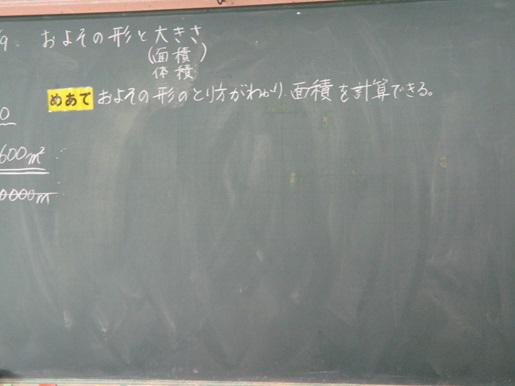 9. およその形と大きさ
(面積)
体積
めあて およその形のとり方がわかり、面積を計算できる。
0
600m²
0000m